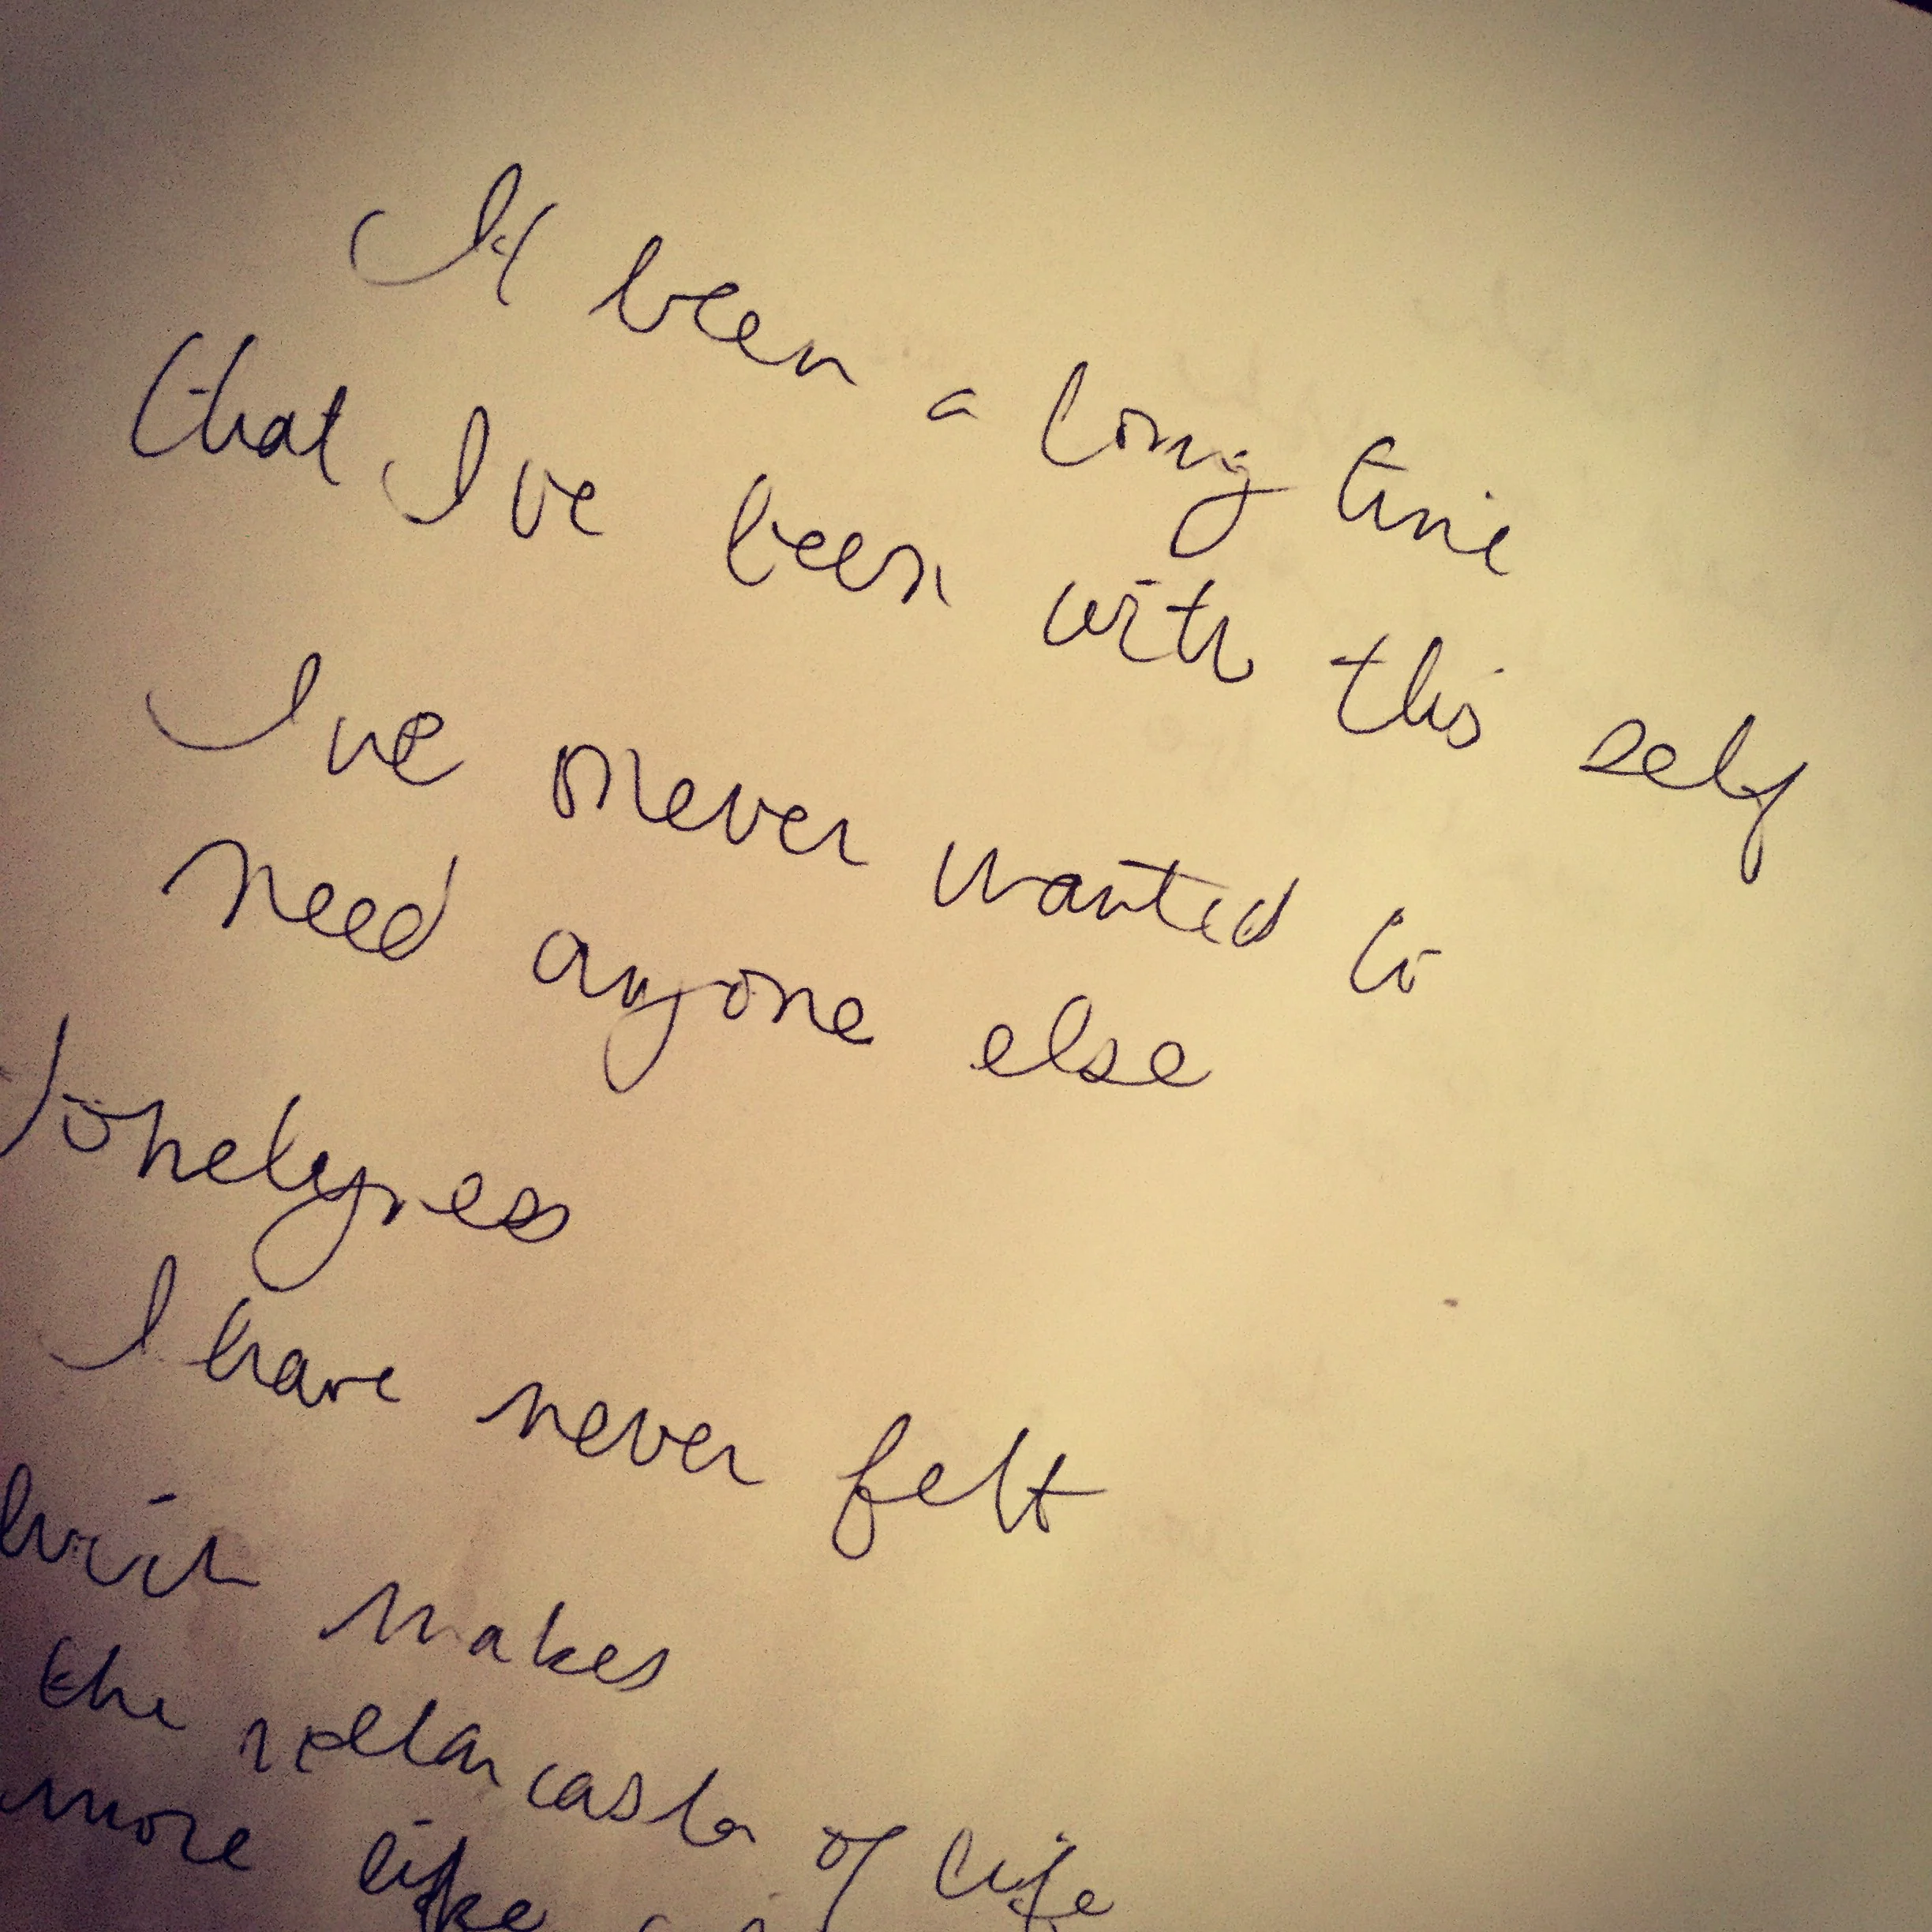 It been a long time
that I've been with this self
I've never wanted to
need anyone else
lonelyness
I have never felt
makes
the rollancaster of life
more like